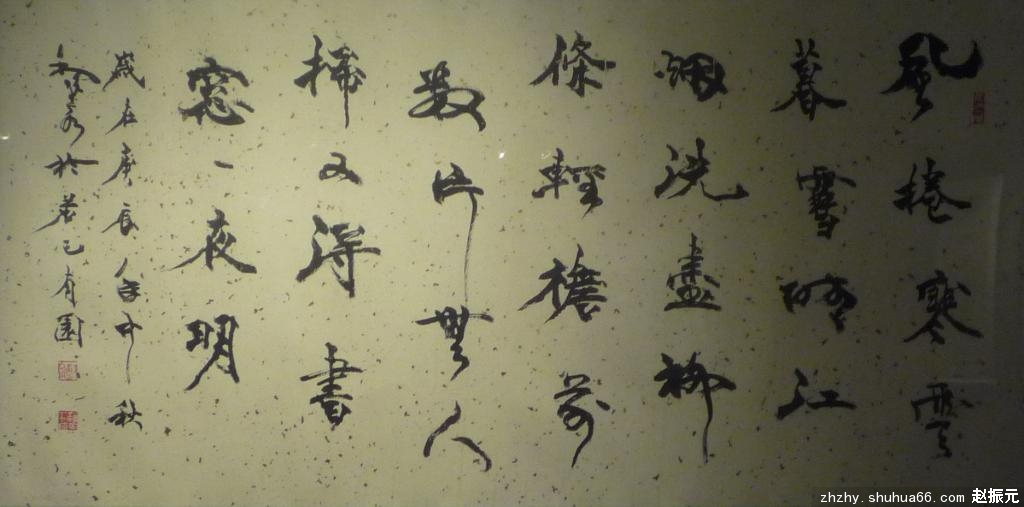 風捲寒雲
暮雪晴江
烟洗盡柳
條輕檐前
數片無人
掃又得書
窓一夜明
歲在庚辰中秋
於已有園
zhzhy.shuhua66.com 赵振元